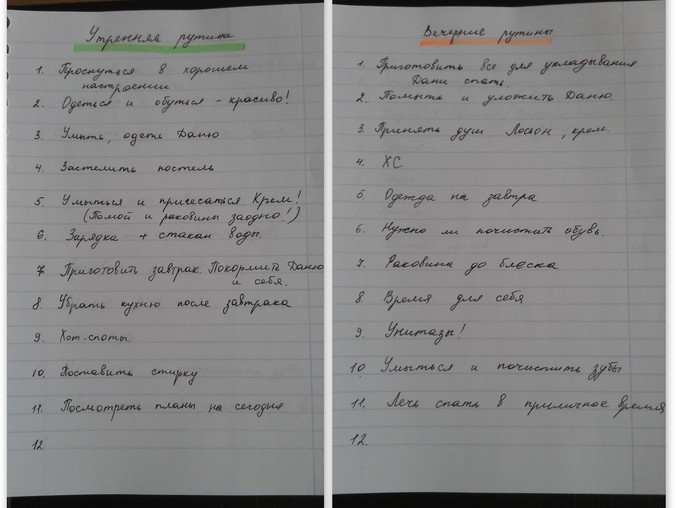 Утренняя рутина
1. Проснуться в хорошем
настроении
2. Одеться и обуться - красиво!
3. Умыть, одеть Даню
4. Застелить постель
5. Умыться и причесаться. Крем!
(Помой и раковины заодно!)
6. Зарядка + стакан воды.
7 Приготовить завтрак. Покормить Даню
и себя.
8. Убрать кухню после завтрака
9. Хот-споты.
10. Поставить стирку
11. Посмотреть планы на сегодня
12
Вечерние рутины
1. Приготовить все для укладывания
Дани спать.
2. Помыть и уложить Даню.
3. Принять душ Лосьон, крем.
4. ХС
5. Одежда на завтра
6. Нужно ли почистить обувь.
7. Раковина до блеска
8 Время для себя
9. Унитазы!
10 Умыться и почистить зубы
11. Лечь спать в приличное время
12.